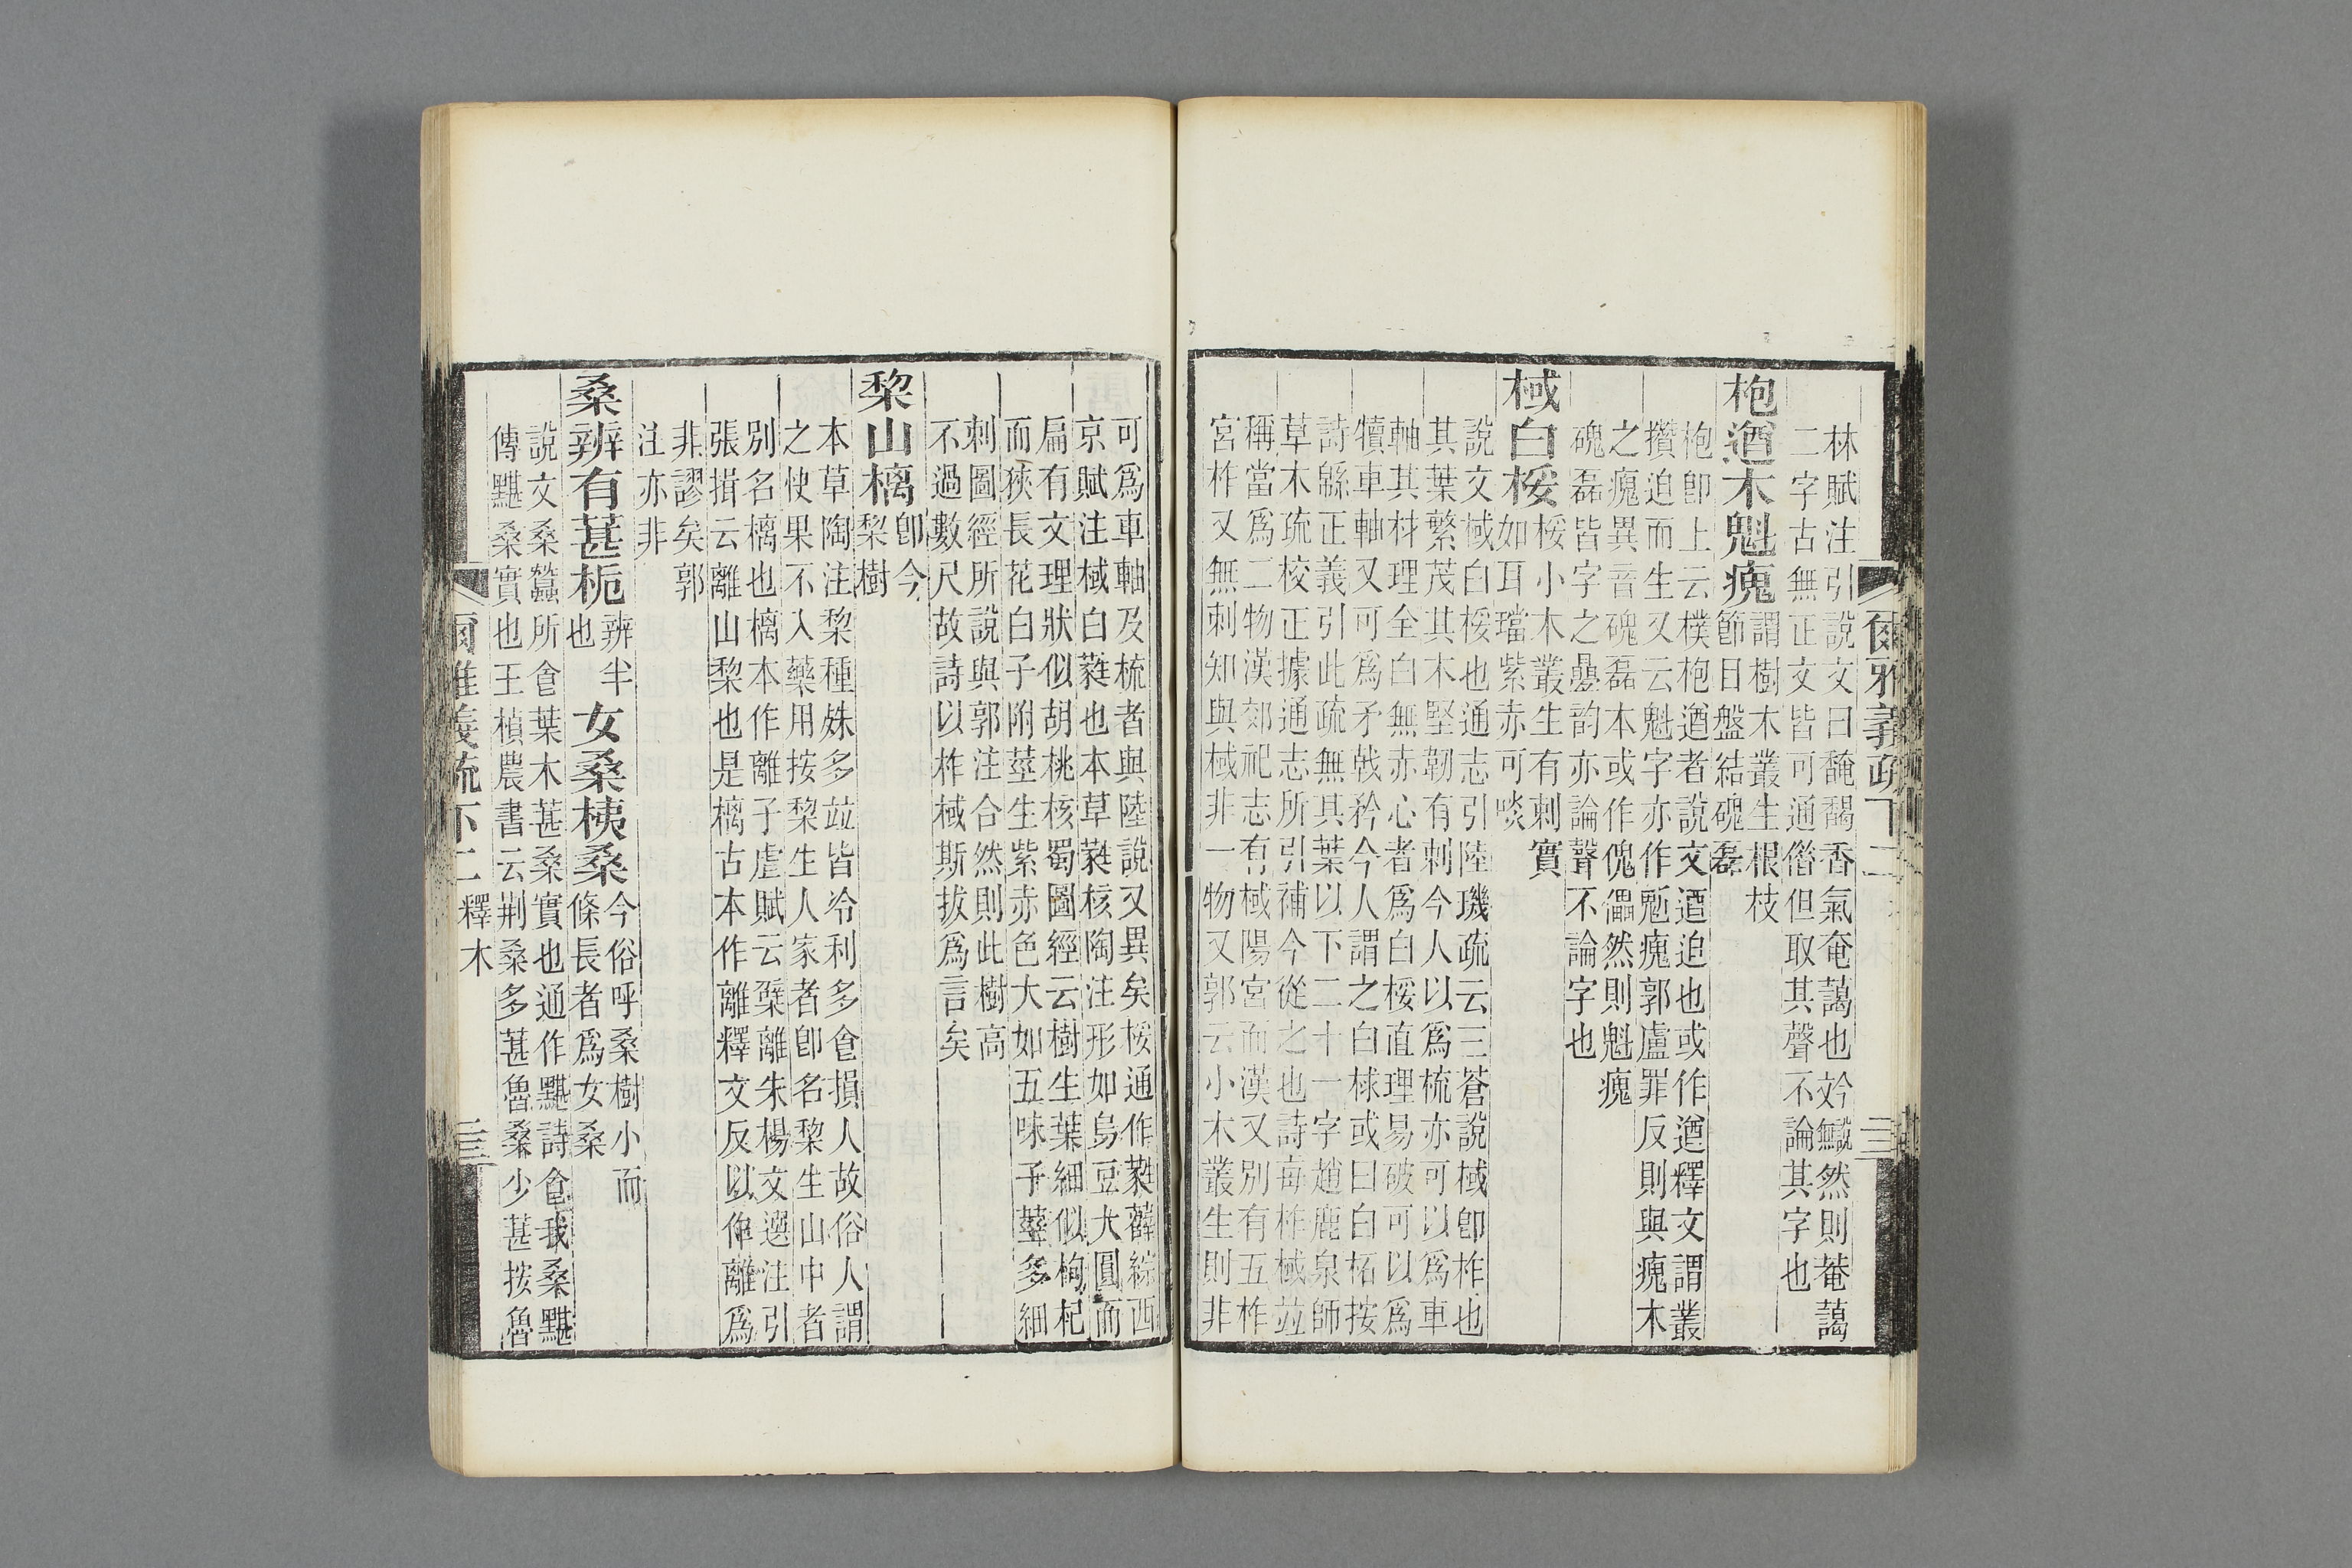 林賦注引說文曰馣馤香氣奄藹也竕䲅然則菴藹
二字古無正文皆可通僭但取其聲不論其字也
枹遒木魁瘣
謂樹木叢生根枝
節目盤結磈磊
枹卽上云樸枹遒者說文遒迫也或作遒釋文謂叢
攢迫而生又云魁字亦作尯瘣郭盧罪反則與瘣木
之瘣異音磈磊本或作傀儡然則魁瘣
磈磊皆字之疊韵亦論聲不論字也
棫白桵
桵小木叢生有刺實
如耳璫紫赤可啖
說文棫白桵也通志引陸璣疏云三蒼說棫卽柞也
其葉繁茂其木堅韌有刺今人以爲梳亦可以爲車
軸其材理全白無赤心者爲白桵直理易破可以爲
犢車軸又可爲矛戟矜今人謂之白梂或曰白柘按
詩緜正義引此疏無其葉以下二十一字趙鹿泉師
草木疏校正據通志所引補今從之也詩每柞棫竝
稱當爲二物漢郊祀志有棫陽宮而漢又別有五柞
宮柞又無刺知與棫非一物又郭云小木叢生則非
爾雅義疏下二
可爲車軸及梳者與陸說又異矣桵通作蕤薛綜西
京賦注棫白蕤也本草蕤核陶注形如烏豆大圓而
扁有文理狀似胡桃核蜀圖經云樹生葉細似枸杞
而狹長花白子附莖生紫赤色大如五味子莖多細
刺圖經所說與郭注合然則此樹高
不過數尺故詩以柞棫斯拔爲言矣
棃山樆
卽今
梨樹
本草陶注棃種姝多竝皆冷利多食損人故俗人謂
之快果不入藥用按棃生人家者卽名棃生山中者
別名樆也樆本作離子虛賦云檗離朱楊文選注引
張揖云離山棃也是樆古本作離釋文反以作離爲
非謬矣郭
注亦非
桑辨有葚梔
辨半
也
女桑桋桑
今俗呼桑樹小而
條長者爲女桑
說文桑蠶所食葉木葚桑實也通作黮詩食我桑黮
傳黮桑實也王楨農書云荆桑多葚魯桑少葚按魯
爾雅義疏下二 釋木